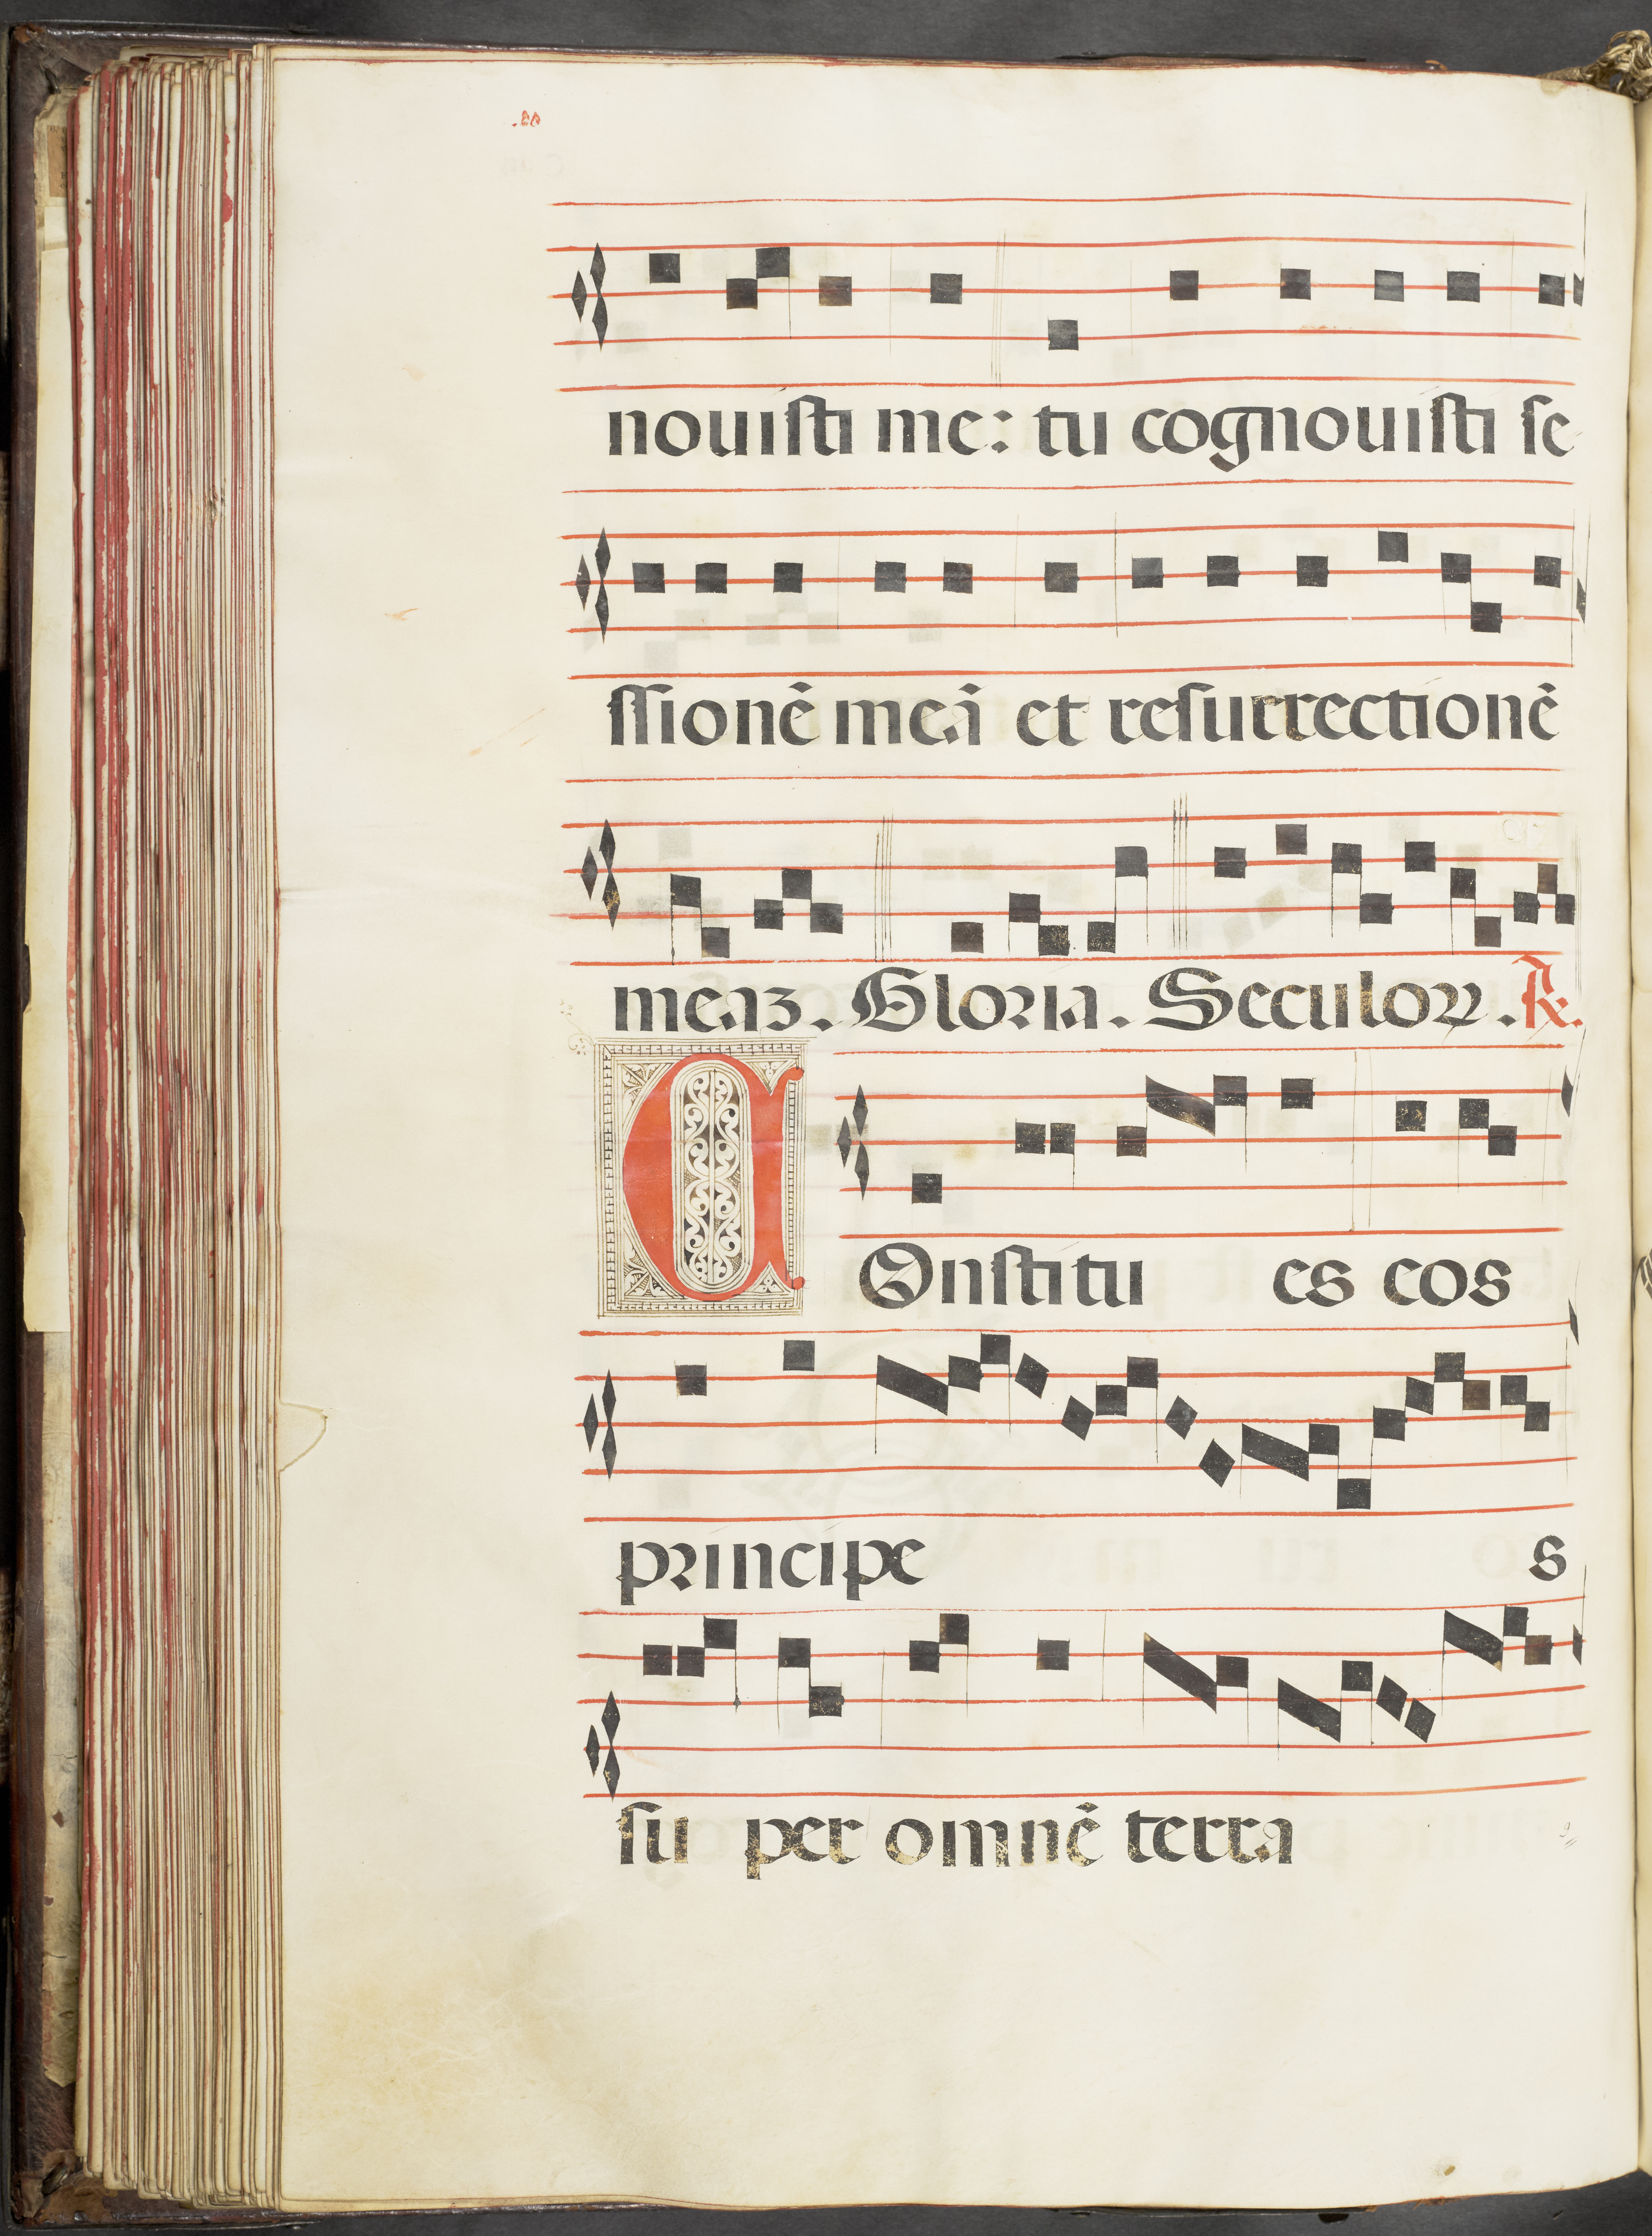 novisti me: tu cognovisti se
ssionē meā et resurrectionē
meaꝫ. Gloria. Seculoꝝ. ℟.
COnstitu es eos
principe s
su per omnē terra